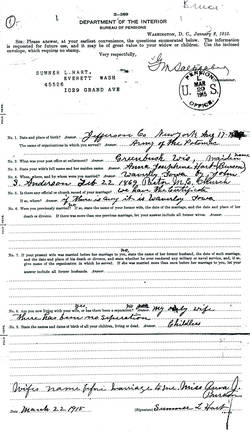 2—389
DEPARTMENT OF THE INTERIOR
BUREAU OF PENSIONS
WASHINGTON, D. C., January 2, 1915.
SIR: Please answer, at your earliest convenience, the questions enumerated below. The information
is requested for future use, and it may be of great value to your widow or children. Use the inclosed
envelope, which requires no stamp.
Very respectfully,
SUMNER L. HART,
EVERETT WASH
45526
1029 GRAND AVE
U. S. PENSION OFFICE
MAR 29 1915
No. 1. Date and place of birth? Answer. Jefferson Co New York Aug 13
The name of organizations in which you served? Answer. Army of the Potomac
No. 2. What was your post office at enlistment? Answer. Greenbush Wis
No. 3. State your wife's full name and her maiden name. Answer. Anna Josephine Hart
No. 4. When, where, and by whom were you married? Answer. Waverly Iowa by John
S. Anderson Feb 22 1869 Pastor M. E. Church
No. 5. Is there any official or church record of your marriage? We have the Certificate
If so, where? if there is any it is Waverly Iowa
No. 6. Were you previously married? If so, state the name of your former wife, the date of the marriage, and the date and place of her
death or divorce. If there was more than one previous marriage, let your answer include all former wives. Answer.
No
No. 7. If your present wife was married before her marriage to you, state the name of her former husband, the date of such marriage,
and the date and place of his death or divorce, and state whether he ever rendered any military or naval service, and, if so,
give name of the organization in which he served. If she was married more than once before her marriage to you, let your
answer include all former husbands. Answer.
No. 8. Are you now living with your wife, or has there been a separation? Answer. yes my only wife
There has been no separation
No. 9. State the names and dates of birth of all your children, living or dead. Answer. Childless
Wifes name before marriage to me. Miss Anna J.
Burson
Date March 22. 1915 (Signature) Sumner L Hart